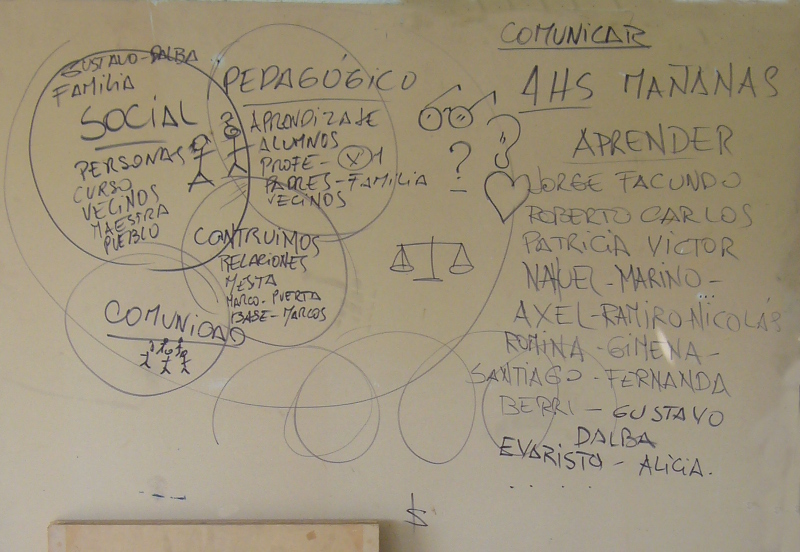 GUSTAVO-DALBA
FAMILIA
SOCIAL
PERSONAS
CURSO
VECINOS
MAESTRA
PUEBLO
PEDAGÓGICO
APRENDIZAJE
ALUMNOS
PROFE- X 1
PADRES-FAMILIA
VECINOS
CONTRUIMOS
RELACIONES
MESTA
MARCO-PUERTA
BASE-MARCOS
COMUNIDAD
?
?
$
COMUNICAR
4HS MAÑANAS
APRENDER
JORGE FACUNDO
ROBERTO CARLOS
PATRICIA VICTOR
NAHUEL-MARINO-
AXEL-RAMIRO-NICOLÁS
ROMINA-GIMENA-
SANTIAGO-FERNANDA
BERRI-GUSTAVO
DALBA
EVARISTO-ALICIA.